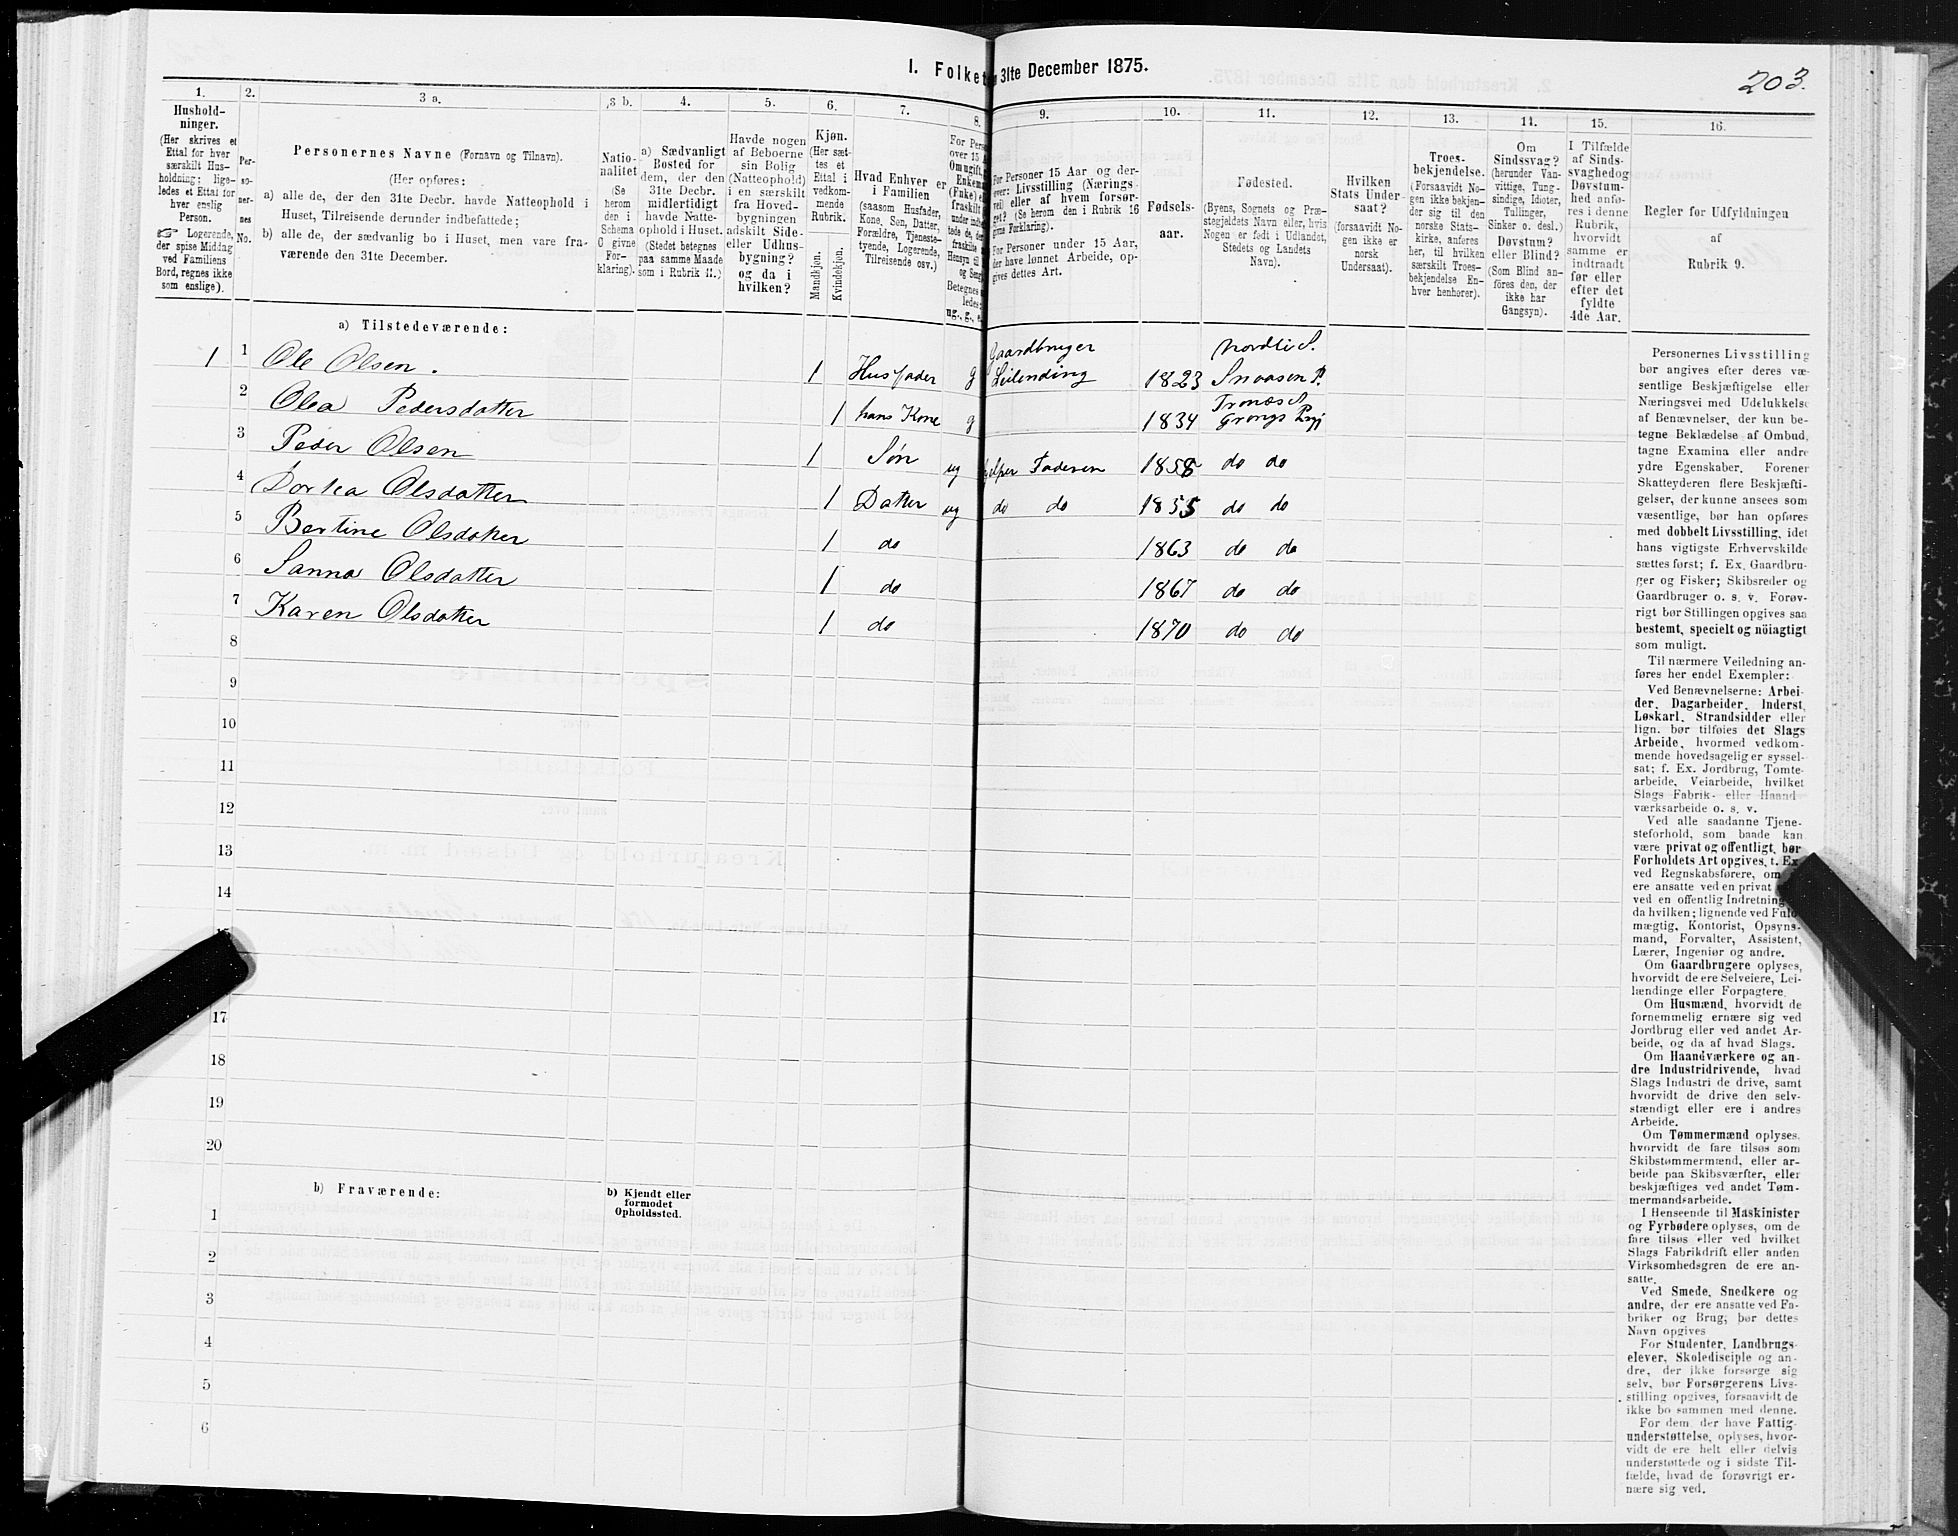 I. Folket 31te December 1875.
203.
1. 2. 3 a. 3 b. 4. 5. 6. 7. 8. 9. 10. 11. 12. 13. 14. 15. 16.
Hushold-
ninger.
(Her skrives et
Ettal for hver
særskilt Hus-
holdning; lige-
ledes et Ettal for
hver enslig
Person.
☞ Logerende,
der spise Middag
ved Familiens
Bord, regnes ikke
som enslige).
Per-
so-
ner-
nes
No.
Personernes Navne (Fornavn og Tilnavn).
(Her opføres:
a) alle de, der den 31te Decbr. havde Natteophold i
Huset, Tilreisende derunder indbefattede;
b) alle de, der sædvanlig bo i Huset, men vare fra-
værende den 31te December.
Natio-
nalitet
(Se
herom
den i
Schema
C givne
For-
klaring).
a) Sædvanligt
Bosted for
dem, der den
31te Decbr.
midlertidigt
havde Natte-
ophold i Huset.
(Stedet betegnes
paa samme Maade
som i Rubrik 11.)
Havde nogen
af Beboerne
sin Bolig
(Natteophold)
i en særskilt
fra Hoved-
bygningen
adskilt Side-
eller Udhus-
bygning?
og da i
hvilken?
Kjøn.
(Her sæt-
tes et
Ettal i
vedkom-
mende
Rubrik.
Mandkjøn.
Kvindekjøn.
Hvad Enhver er
i Familien
(saasom Husfader,
Kone, Søn, Datter,
Forældre, Tjeneste-
tyende, Logerende,
Tilreisende osv.)
For Personer 15 Aar og der-
over: Livsstilling (Nærings-
vei) eller af hvem forsør-
get? (Se herom den i Rubrik 16
givne Forklaring).
For Personer under 15 Aar,
der have lønnet Arbeide, op-
gives dettes Art.
Fødsels-
aar.
Fødested.
(Byens, Sognets og Præ-
stegjeldets Navn eller, hvis
Nogen er født i Udlandet,
Stedets og Landets
Navn).
Hvilken
Stats Under-
saat?
(forsaavidt No-
gen ikke er
norsk
Undersaat).
Troes-
bekjendelse.
(Forsaavidt No-
gen ikke bekjen-
der sig til den
norske Stats-
kirke, anføres
her, til hvilken
særskilt Troes-
bekjendelse En-
hver henhører).
Om
Sindssvag?
(herunder Van-
vittige, Tung-
sindige, Idioter,
Tullinger,
Sinker o. desl.)
Døvstum?
eller Blind?
(Som Blind an-
føres den, der
ikke har
Gangsyn).
I Tilfælde
af Sinds-
svaghed og
Døvstum-
hed anfø-
res i denne
Rubrik,
hvorvidt
samme er
indtraadt
før eller
efter det
fyldte
4de Aar.
Regler for Udfyldningen
af
Rubrik 9.
a) Tilstedeværende:
1 1 Ole Olsen. 1 Husfader g Gaardbruger Leilending 1823 Nordli S. Snaasen P.
2 Olea Pedersdatter 1 hans Kone g 1834 Grongs Prgj
3 Peder Olsen 1 Søn ug Faderen 1858 do do
4 Dortea Olsdatter 1 Datter ug do do 1855 do do
5 Bertine Olsdatter 1 do 1863 do do
6 Sanna Olsdatter 1 do 1867 do do
7 Karen Olsdatter 1 do 1870 do do
8
9
10
11
12
13
14
17
18
19
20
b) Fraværende:
b) Kjendt eller
formodet
Opholdssted.
1
2
3
4
5
6
Personernes Livsstilling
bør angives efter deres væ-
sentlige Beskjæftigelse eller
Næringsvei med Udelukkelse
af Benævnelser, der kun be-
tegne Beklædelse af Ombud,
tagne Examina eller andre
ydre Egenskaber. Forener
Skatteyderen flere Beskjæfti-
gelser, der kunne ansees som
væsentlige, bør han opføres
med dobbelt Livsstilling, idet
hans vigtigste Erhvervskilde
sættes først; f. Ex. Gaardbru-
ger og Fisker; Skibsreder og
Gaardbruger o. s. v. Forøv-
rigt bør Stillingen opgives saa
bestemt, specielt og nöiagtigt
som muligt.
Til nærmere Veiledning an-
føres her endel Exempler:
Ved Benævnelserne: Arbei-
der, Dagarbeider, Inderst,
Løskarl, Strandsidder eller
lign. bør tilføies det Slags
Arbeide, hvormed vedkom-
mende hovedsagelig er syssel-
sat; f. Ex. Jordbrug, Tomte-
arbeide, Veiarbeide, hvilket
Slags Fabrik- eller Haand-
værksarbeide o. s. v.
Ved alle saadanne Tjene-
steforhold, som baade kan
være privat og offentligt, bør
Forholdets Art opgives, f. Ex.
ved Regnskabsførere, om
ere ansatte ved en privat
ved en offentlig Indretning
da hvilken; lignende ved Fuld-
mægtig, Kontorist, Opsyns-
mand, Forvalter, Assistent,
Lærer, Ingeniør og andre.
Om Gaardbrugere oplyses,
hvorvidt de ere Selveiere, Lei-
lændinge eller Forpagtere.
Om Husmænd, hvorvidt de
fornemmelig ernære sig ved
Jordbrug eller ved andet Ar-
beide, og da af hvad Slags.
Om Haandværkere og an-
dre Industridrivende, hvad
Slags Industri de drive, samt
hvorvidt de drive den selv-
stændigt eller ere i andres
Arbeide.
Om Tømmermænd oplyses,
hvorvidt de fare tilsøs som
Skibstømmermænd, eller ar-
beide paa Skibsværfter, eller
beskjæftiges ved andet Tøm-
mermandsarbeide.
I Henseende til Maskinister
og Fyrbødere oplyses, om de
fare tilsøs eller ved hvilket
Slags Fabrikdrift eller anden
Virksomhedsgren de ere an-
satte.
Ved Smede, Snedkere og
andre, der ere ansatte ved Fa-
briker og Brug, bør dettes
Navn opgives
For Studenter, Landbrugs-
elever, Skoledisciple og an-
dre, der ikke forsørge sig
selv, bør Forsørgerens Livs-
stilling opgives, forsaavidt de
ikke bo sammen med denne.
For dem, der have Fattig-
understøttelse, oplyses, hvor-
vidt de ere helt eller delvis
understøttede og i sidste Til-
fælde, hvad de forøvrigt er-
nære sig ved.